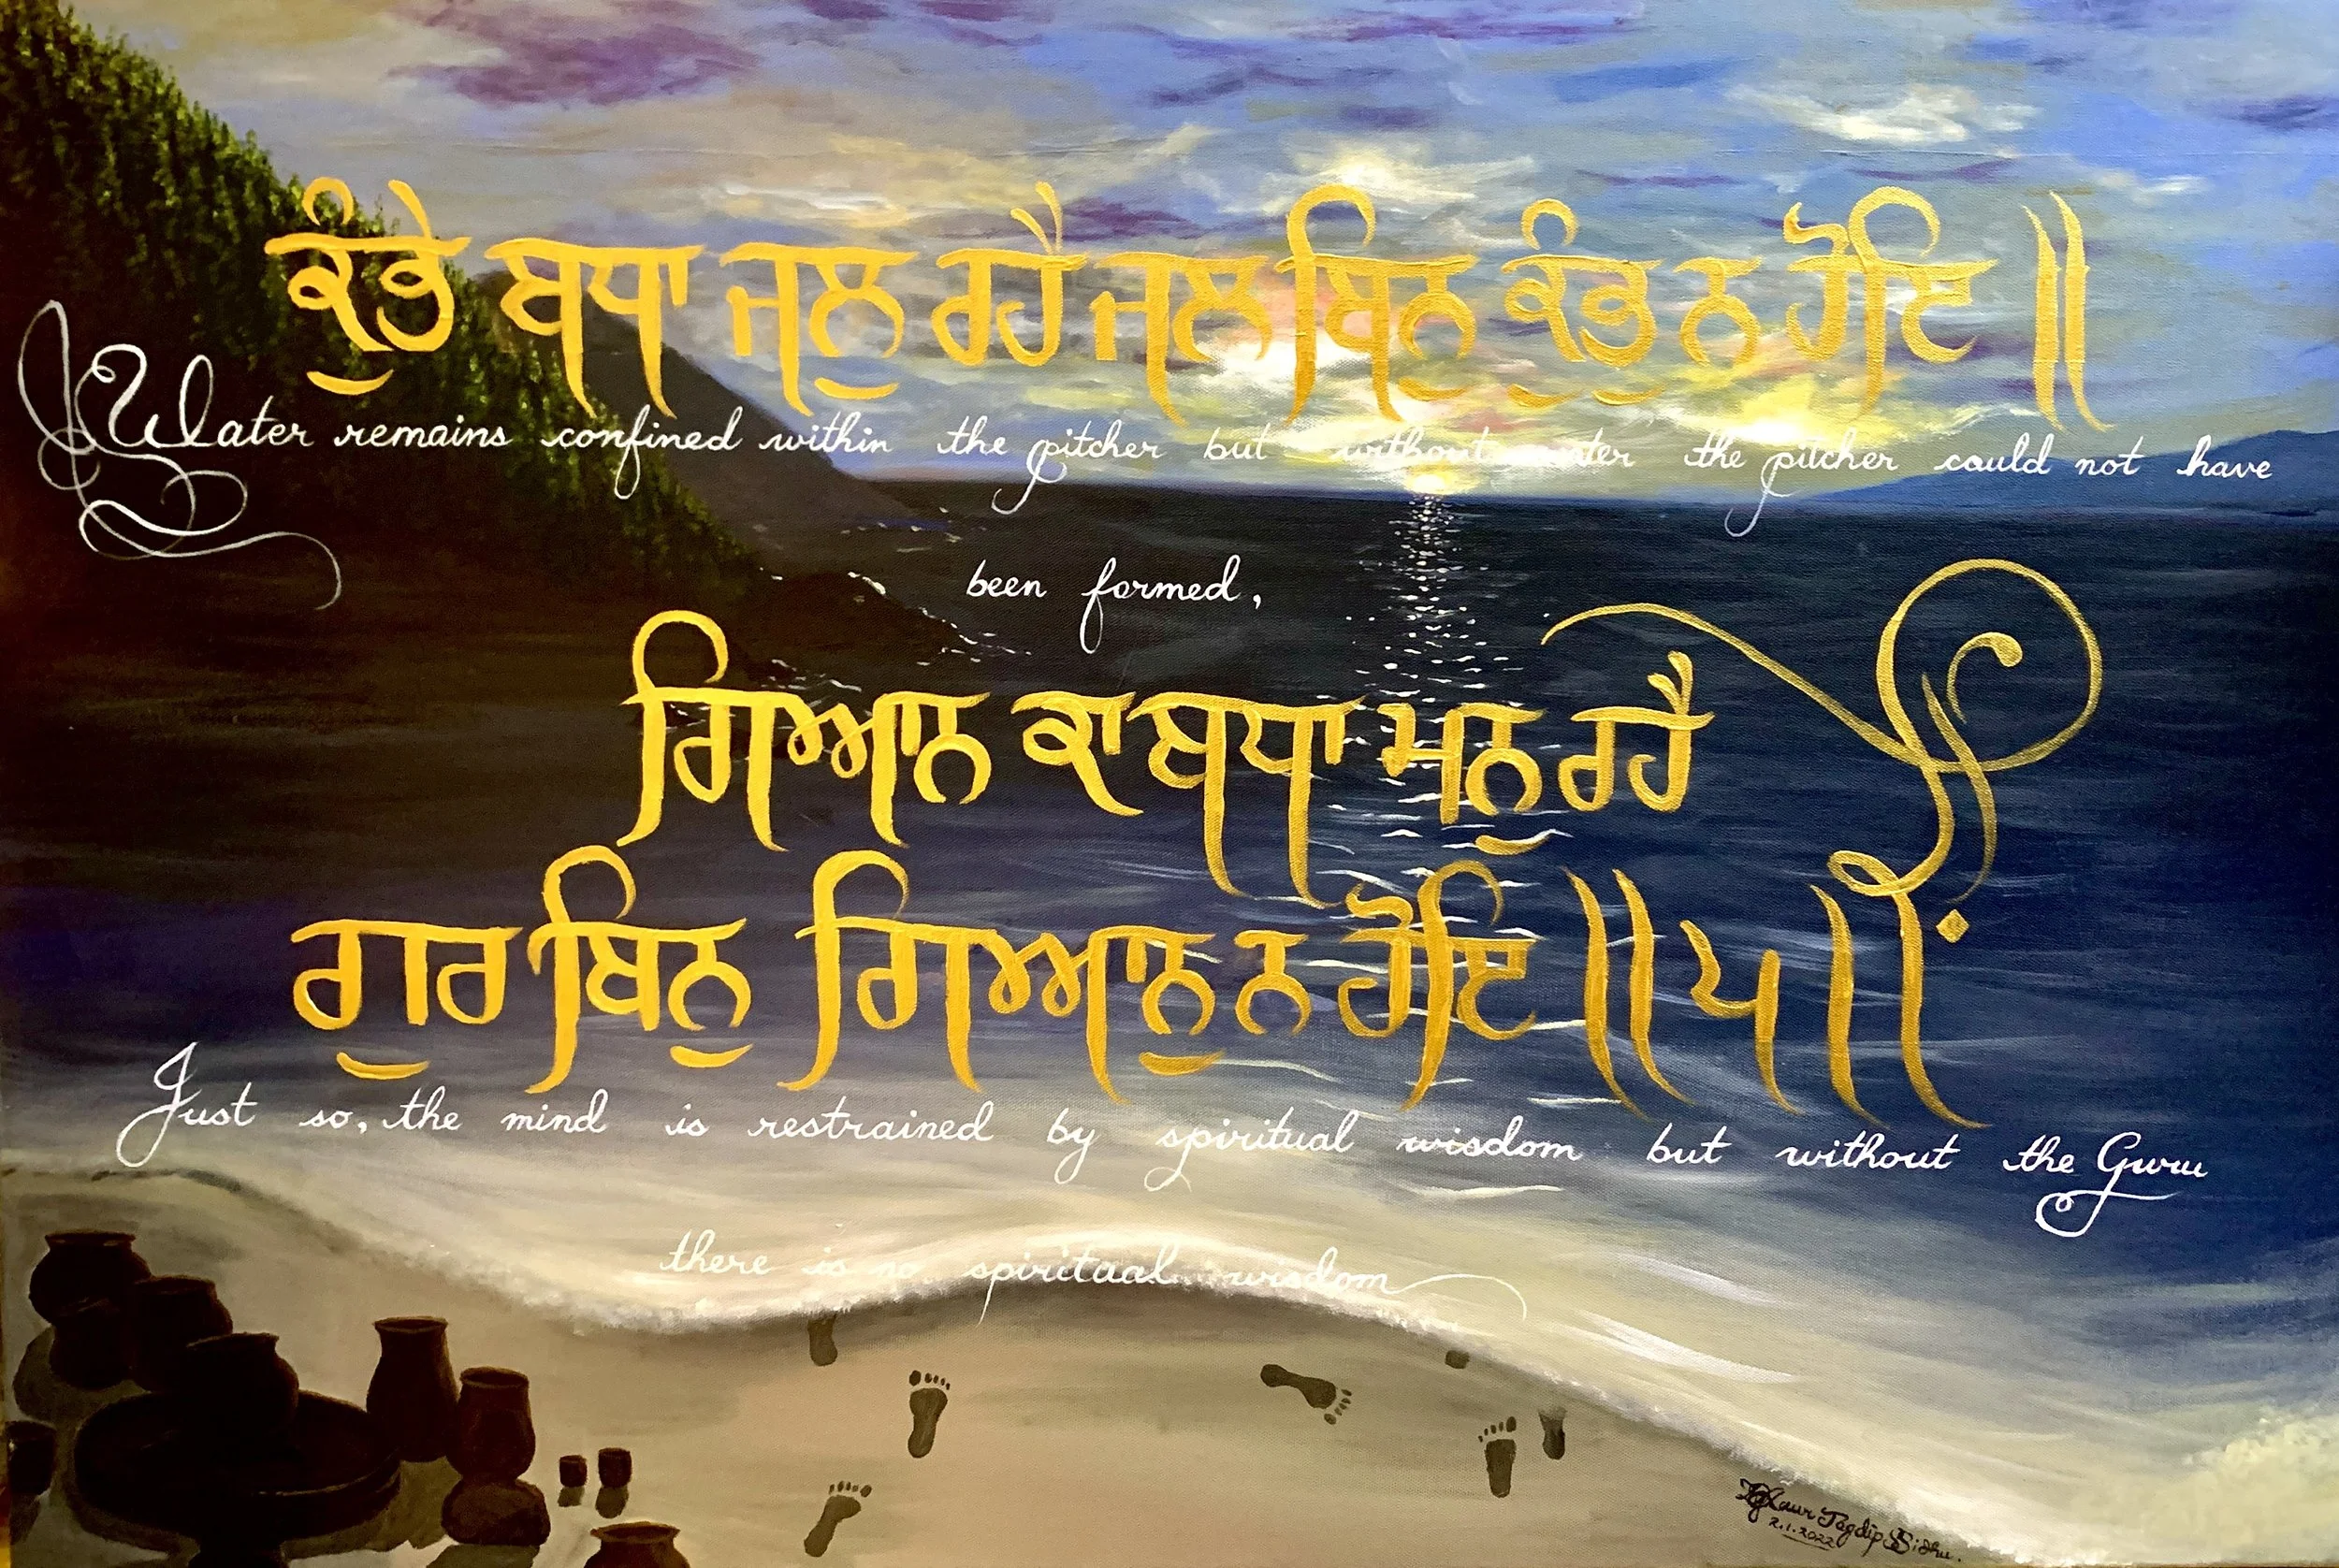 ਕੁੰਭੇ ਬਧਾ ਜਲੁ ਰਹੈ ਜਲ ਬਿਨੁ ਕੁੰਭੁ ਨ ਹੋਇ ॥
Water remains confined within the pitcher but without water the pitcher could not have
been formed,
ਗਿਆਨ ਕਾ ਬਧਾ ਮਨੁ ਰਹੈ
ਗੁਰ ਬਿਨੁ ਗਿਆਨੁ ਨ ਹੋਇ ॥੫॥
Just so, the mind is restrained by spiritual wisdom but without the Guru
there is no spiritual wisdom
Kaur Jagdip S Sidhu.
2.1.2022